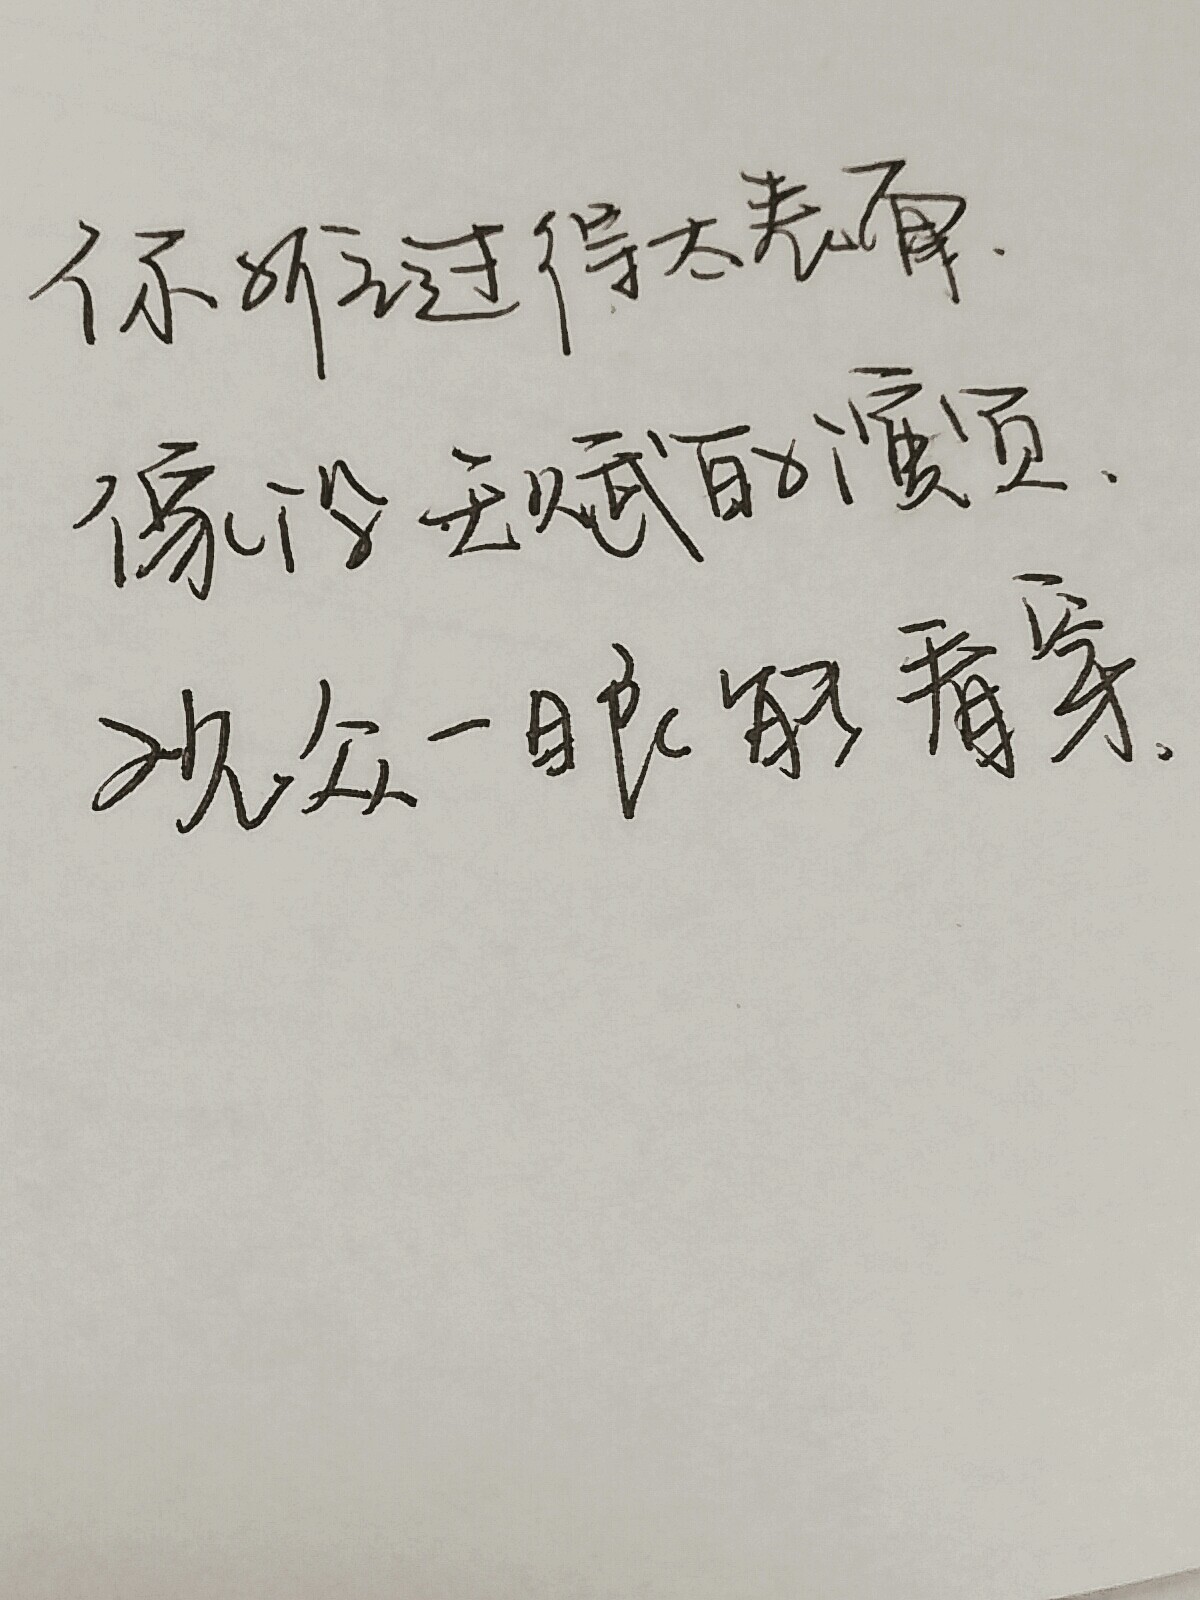 你难过得太表面.
像没天赋的演员.
观众一眼能看穿.